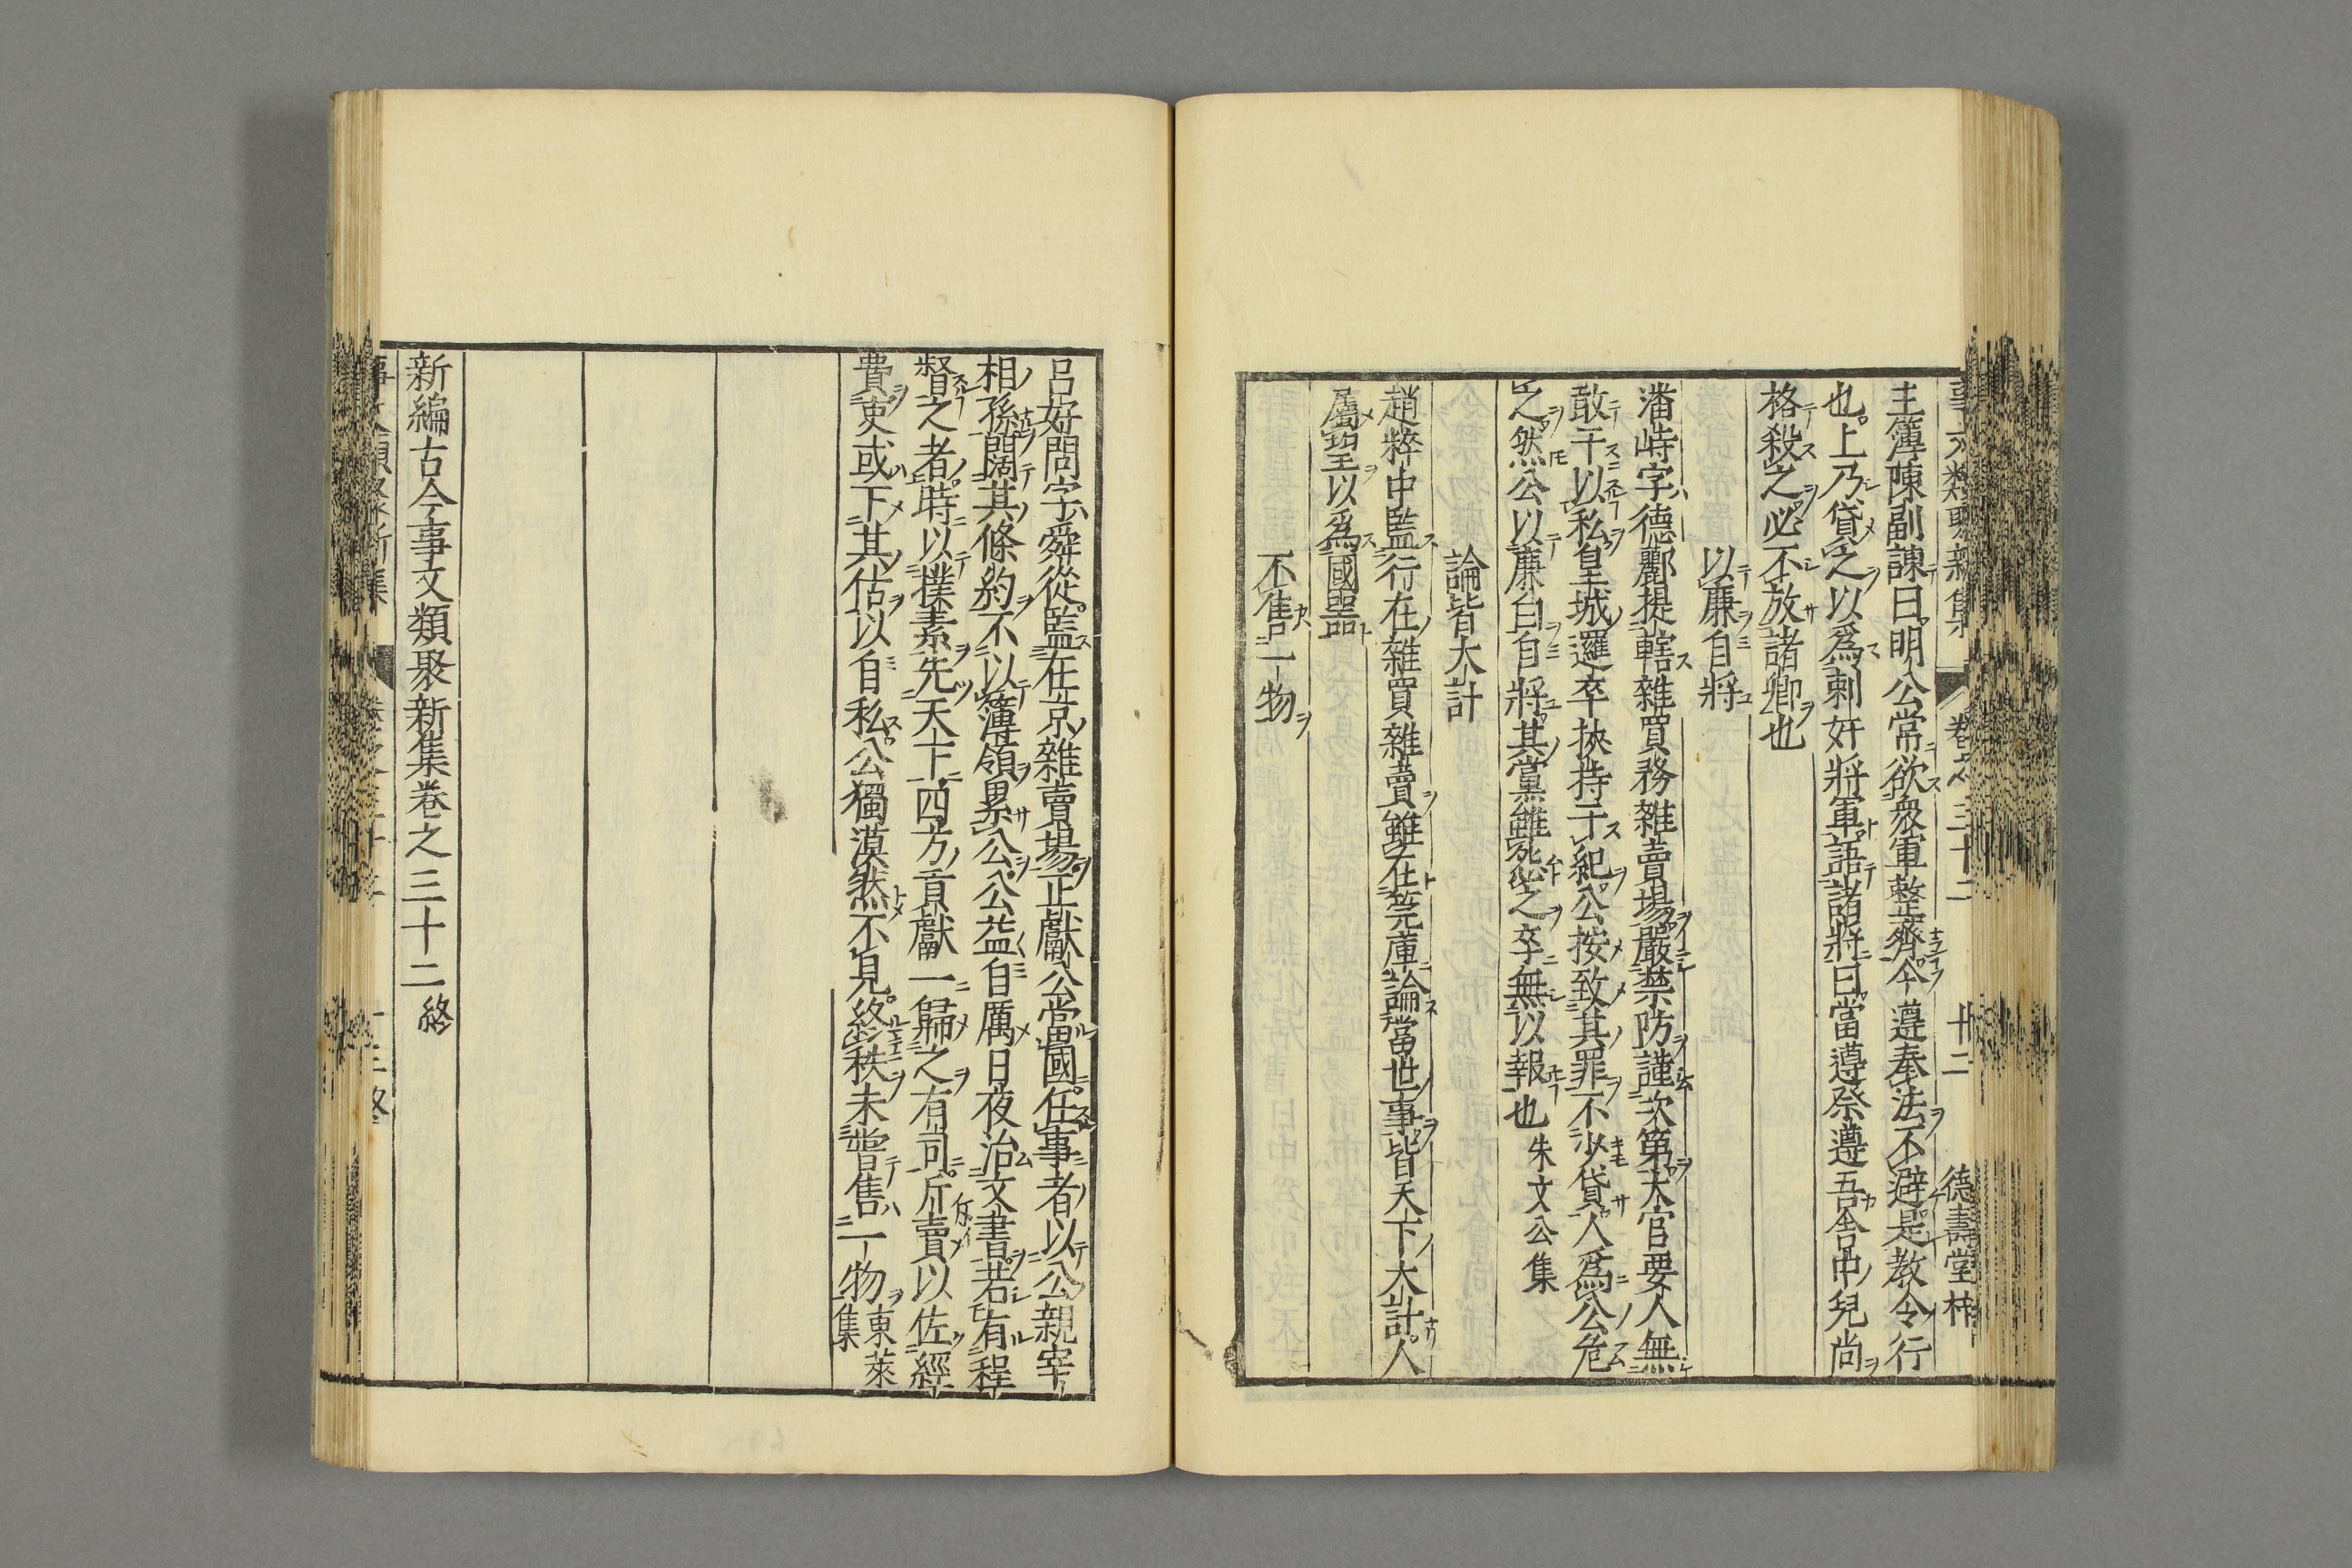 主簿陳副諫曰明公常欲衆軍整齊今遵奉法不避是教令行
也上乃貸之以爲刺奸將軍語諸將曰當遵祭遵吾舍中兒尚
格殺之必不放諸卿也
以廉自將
潘畤字德鄜提轄雜買務雜賣場嚴禁防謹次第大官要人無
敢干以私皇城邏卒挾持干紀公按致其罪不少貸人爲公危
之然公以廉白自將其黨雖怨之卒無以報也朱文公集
論皆大計
趙粹中監行在雜買雜賣雖在筦庫論當世事皆天下大計人
屬望以爲國器
不售一物
呂好問字舜從監在京雜賣場正獻公當國任事者以公親宰
相孫闊其條約不以簿領累公公益自厲日夜治文書若有程
督之者時以樸素先天下四方貢獻一歸之有司斥賣以佐經
費吏或下其估以自私公獨漠然不見終秩未嘗售一物東萊集
新編古今事文類聚新集卷之三十二終